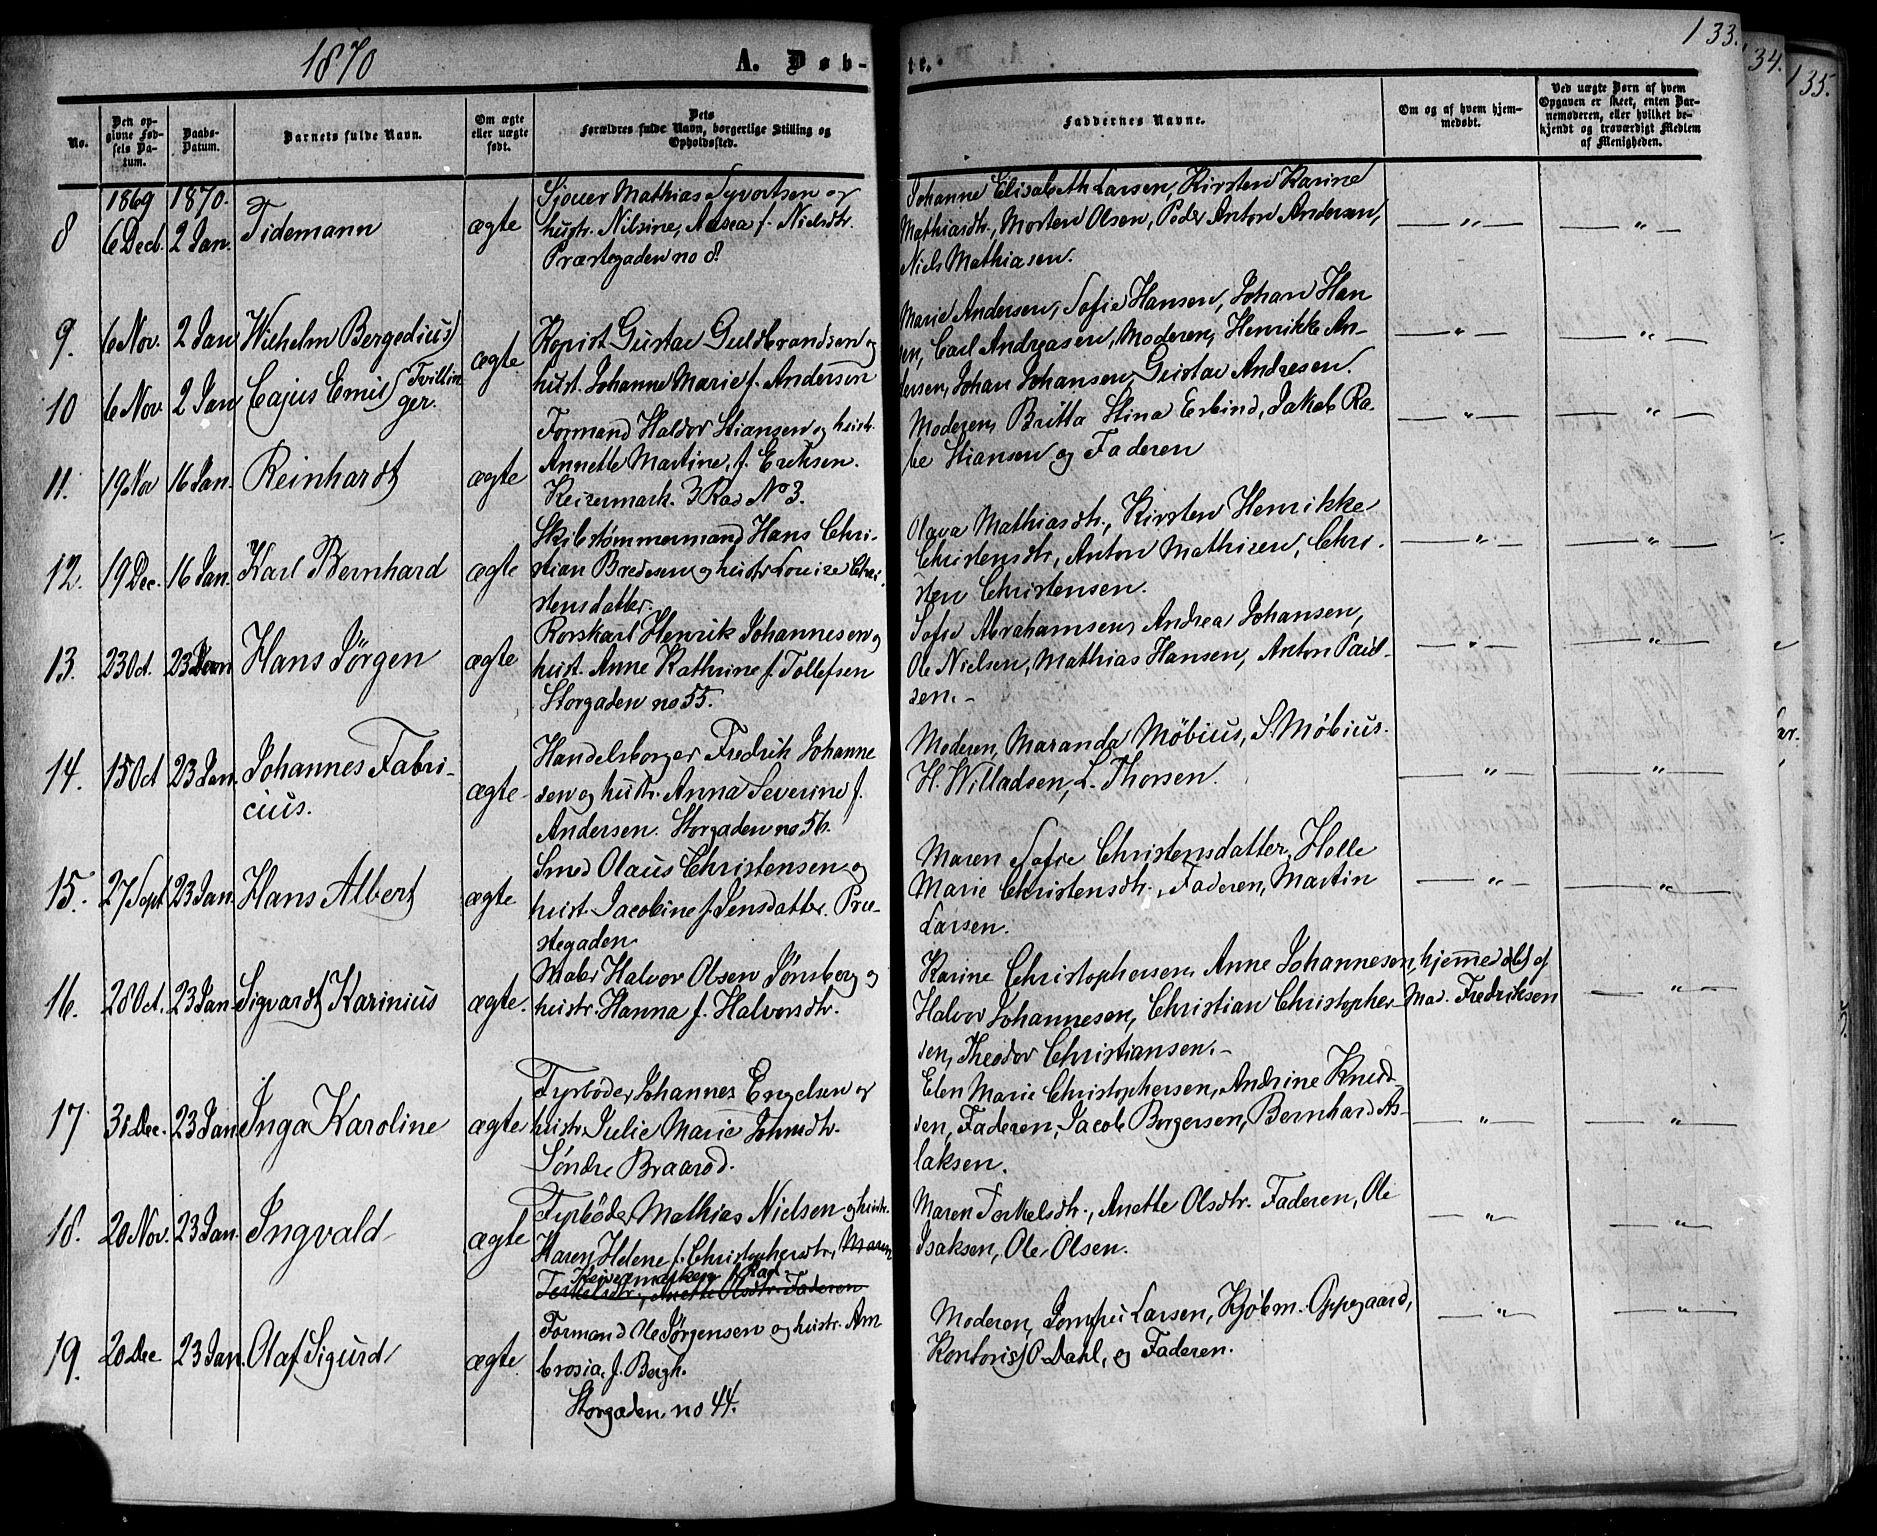 1870
A. Døb-
te.
133.
34.
135.
No.
Den op-
givne Fød-
sels Da-
tum.
Daabs-
Datum.
Barnets fulde Navn.
Om ægte
eller uægte
født.
Dets
Forældres fulde Navn, borgerlige Stilling og
Opholdssted.
Faddernes Navne.
Om og af hvem hjem-
medøbt.
Ved uægte Børn af hvem
Opgaven er skeet, enten Bar-
nemoderen, eller hvilket be-
kjendt og troværdigt Medlem
af Menigheden.
1869 1870.
8 6 Decb. 2 Jan. Tidemann ægte
Sjouer Mathias Syvertsen og
hustr. Nilsine, Aasea f. Nielsdtr.
Præstegaden no 8.
Johanne Elisabeth Larsen, Kirsten Karine
Mathiasdtr., Morten Olsen, Peder Anton Andersen,
Niels Mathiasen.
— " — — " —
9. 6 Nov. 2 Jan Wilhelm Bergedius
10 6 Nov. 2 Jan Cajus Emil Tvillin
ger.
ægte
Kopist Gustav Guldbrandsen og
hust. Johanne Marie f. Andersen
Marie Andersen, Sofie Hansen, Johan Han
sen, Carl Andreasen, Moderen, Henrikke An-
dersen, Johan Johansen, Gustav Andresen.
— " — — " —
— " — — " —
11. 19 Nov 16 Jan. Reinhardt ægte
Formand Haldor Stiansen og hustr.
Annette Martine, f. Eriksen.
Keisermark. 3 Rad No 3.
Moderen, Britta Stina Erbind, Jakob Ra-
be Stiansen og Faderen
12. 19 Dec. 16 Jan. Karl Bernhard ægte
Skibstømmermand Hans Chri-
stian Bredesen og hustr Louise Chri
stensdatter.
Olava Mathiasdtr., Kirsten Henrikke
Christensdtr, Anton Mathisen, Chri-
sten Christensen.
— " — — " —
13. 23 Oct. 23 Jan Hans Jørgen ægte
Rorskarl Henrik Johannesen og
hust. Anne Kathrine f. Tollefsen
Storgaden no 55.
Sofie Abrahamsen, Andrea Johansen,
Ole Nielsen, Mathias Hansen, Anton Paul-
sen.-
— " — — " —
14. 15 Oct 23 Jan. Johannes Fabri-
cius.
ægte
Handelsborger Fredrik Johanne
sen og hustr. Anna Severine f.
Andersen. Storgaden no 56.
Moderen, Maranda Møbius, S. Møbius.
H. Willadsen, L. Thorsen.
— " — — " —
15. 27 Sept 23 Jan. Hans Albert ægte
Smed Olaus Christensen og
hust. Jacobine f. Jensdatter. Præ-
stegaden
Maren Sofie Christensdatter, Helle
Marie Christensdtr., Faderen, Martin
Larsen.
— " — — " —
16. 28 Oct. 23 Jan Sigvardt Karinius ægte.
Maler Halvor Olsen Tønsberg og
hustr. Hanna f. Halvorsdtr.
Karine Christophersen, Anne Johannesen,
Halvor Johannesen, Christian Christopher-
sen, Theodor Christiansen.-
hjemmedøbt af
Mad. Fredriksen
— " —
17. 31 Dec. 23 Jan Inga Karoline ægte
Fyrbøder Johannes Engelsen og
hustr. Julie Marie
Søndre Braarød.
Elen Marie Christophersen, Andrine Knud-
sen, Faderen, Jacob Borgersen, Bernhard As-
laksen.
— " — — " —
18. 20 Nov. 23 Jan. Ingvald ægte
Fyrbøder Mathias Nielsen og hustr.
Karen Helene f. Christophersdtr, Maren
Keisermarken 1 Rad
Terkelsdtr., Anette Olsdtr. Faderen
Maren Terkelsdtr., Anette Olsdtr. Faderen, Ole
Isaksen, Ole Olsen.
— " — — " —
19. 20 Dec 23 Jan. Olaf Sigurd ægte
Formand Ole Jørgensen og hustr. Am
brosia, f. Bergh.
Storgaden, no 44.
Moderen, Jomfru Larsen, Kjøbm. Oppegaard,
Kontorist P. Dahl, og Faderen.
— " — — " —